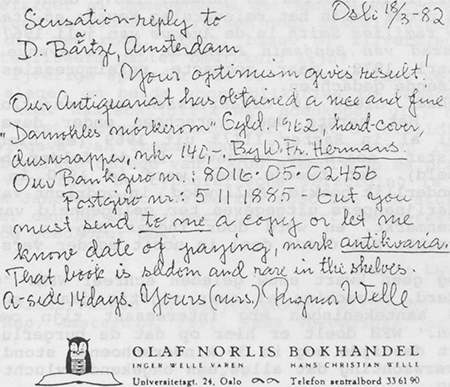 Oslo 18/3-82
Sensation-reply to
D. Bärtze, Amsterdam
Your optimism gives result!
Our Antiquariat has obtained a nice and fine
"Damokles' mörkerom" Gyld. 1962, hard-cover,
duswrapper, nkr 140,-. By W. Fr. Hermans.
Our Bankgiro nr.: 8016.05.02456
Postgiro nr.: 5 11 1885 - but you
must send to me a copy or let me
know date of paying, mark antikvaria.
That book is seldom and rare in the shelves.
A-side 14 days. Yours (mrs.) Welle
OLAF NORLIS BOKHANDEL
INGER WELLE VAREN HANS CHRISTIAN WELLE
Universitetsgt. 24, Oslo Telefon sentralbord 33 61 90